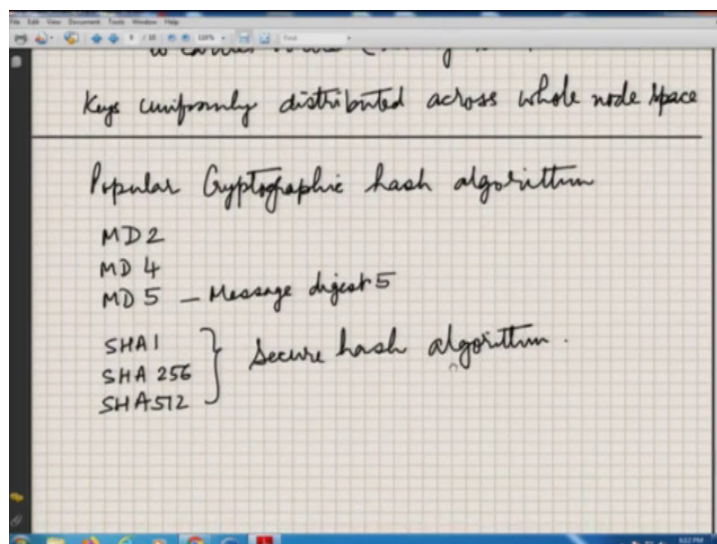 File Edit View Document Tools Window Help
Keys uniformly distributed across whole node space
Popular Cryptographic hash algorithm
MD2
MD4
MD5 – Message digest 5
SHA1
SHA 256 } Secure hash algorithm.
SHA512